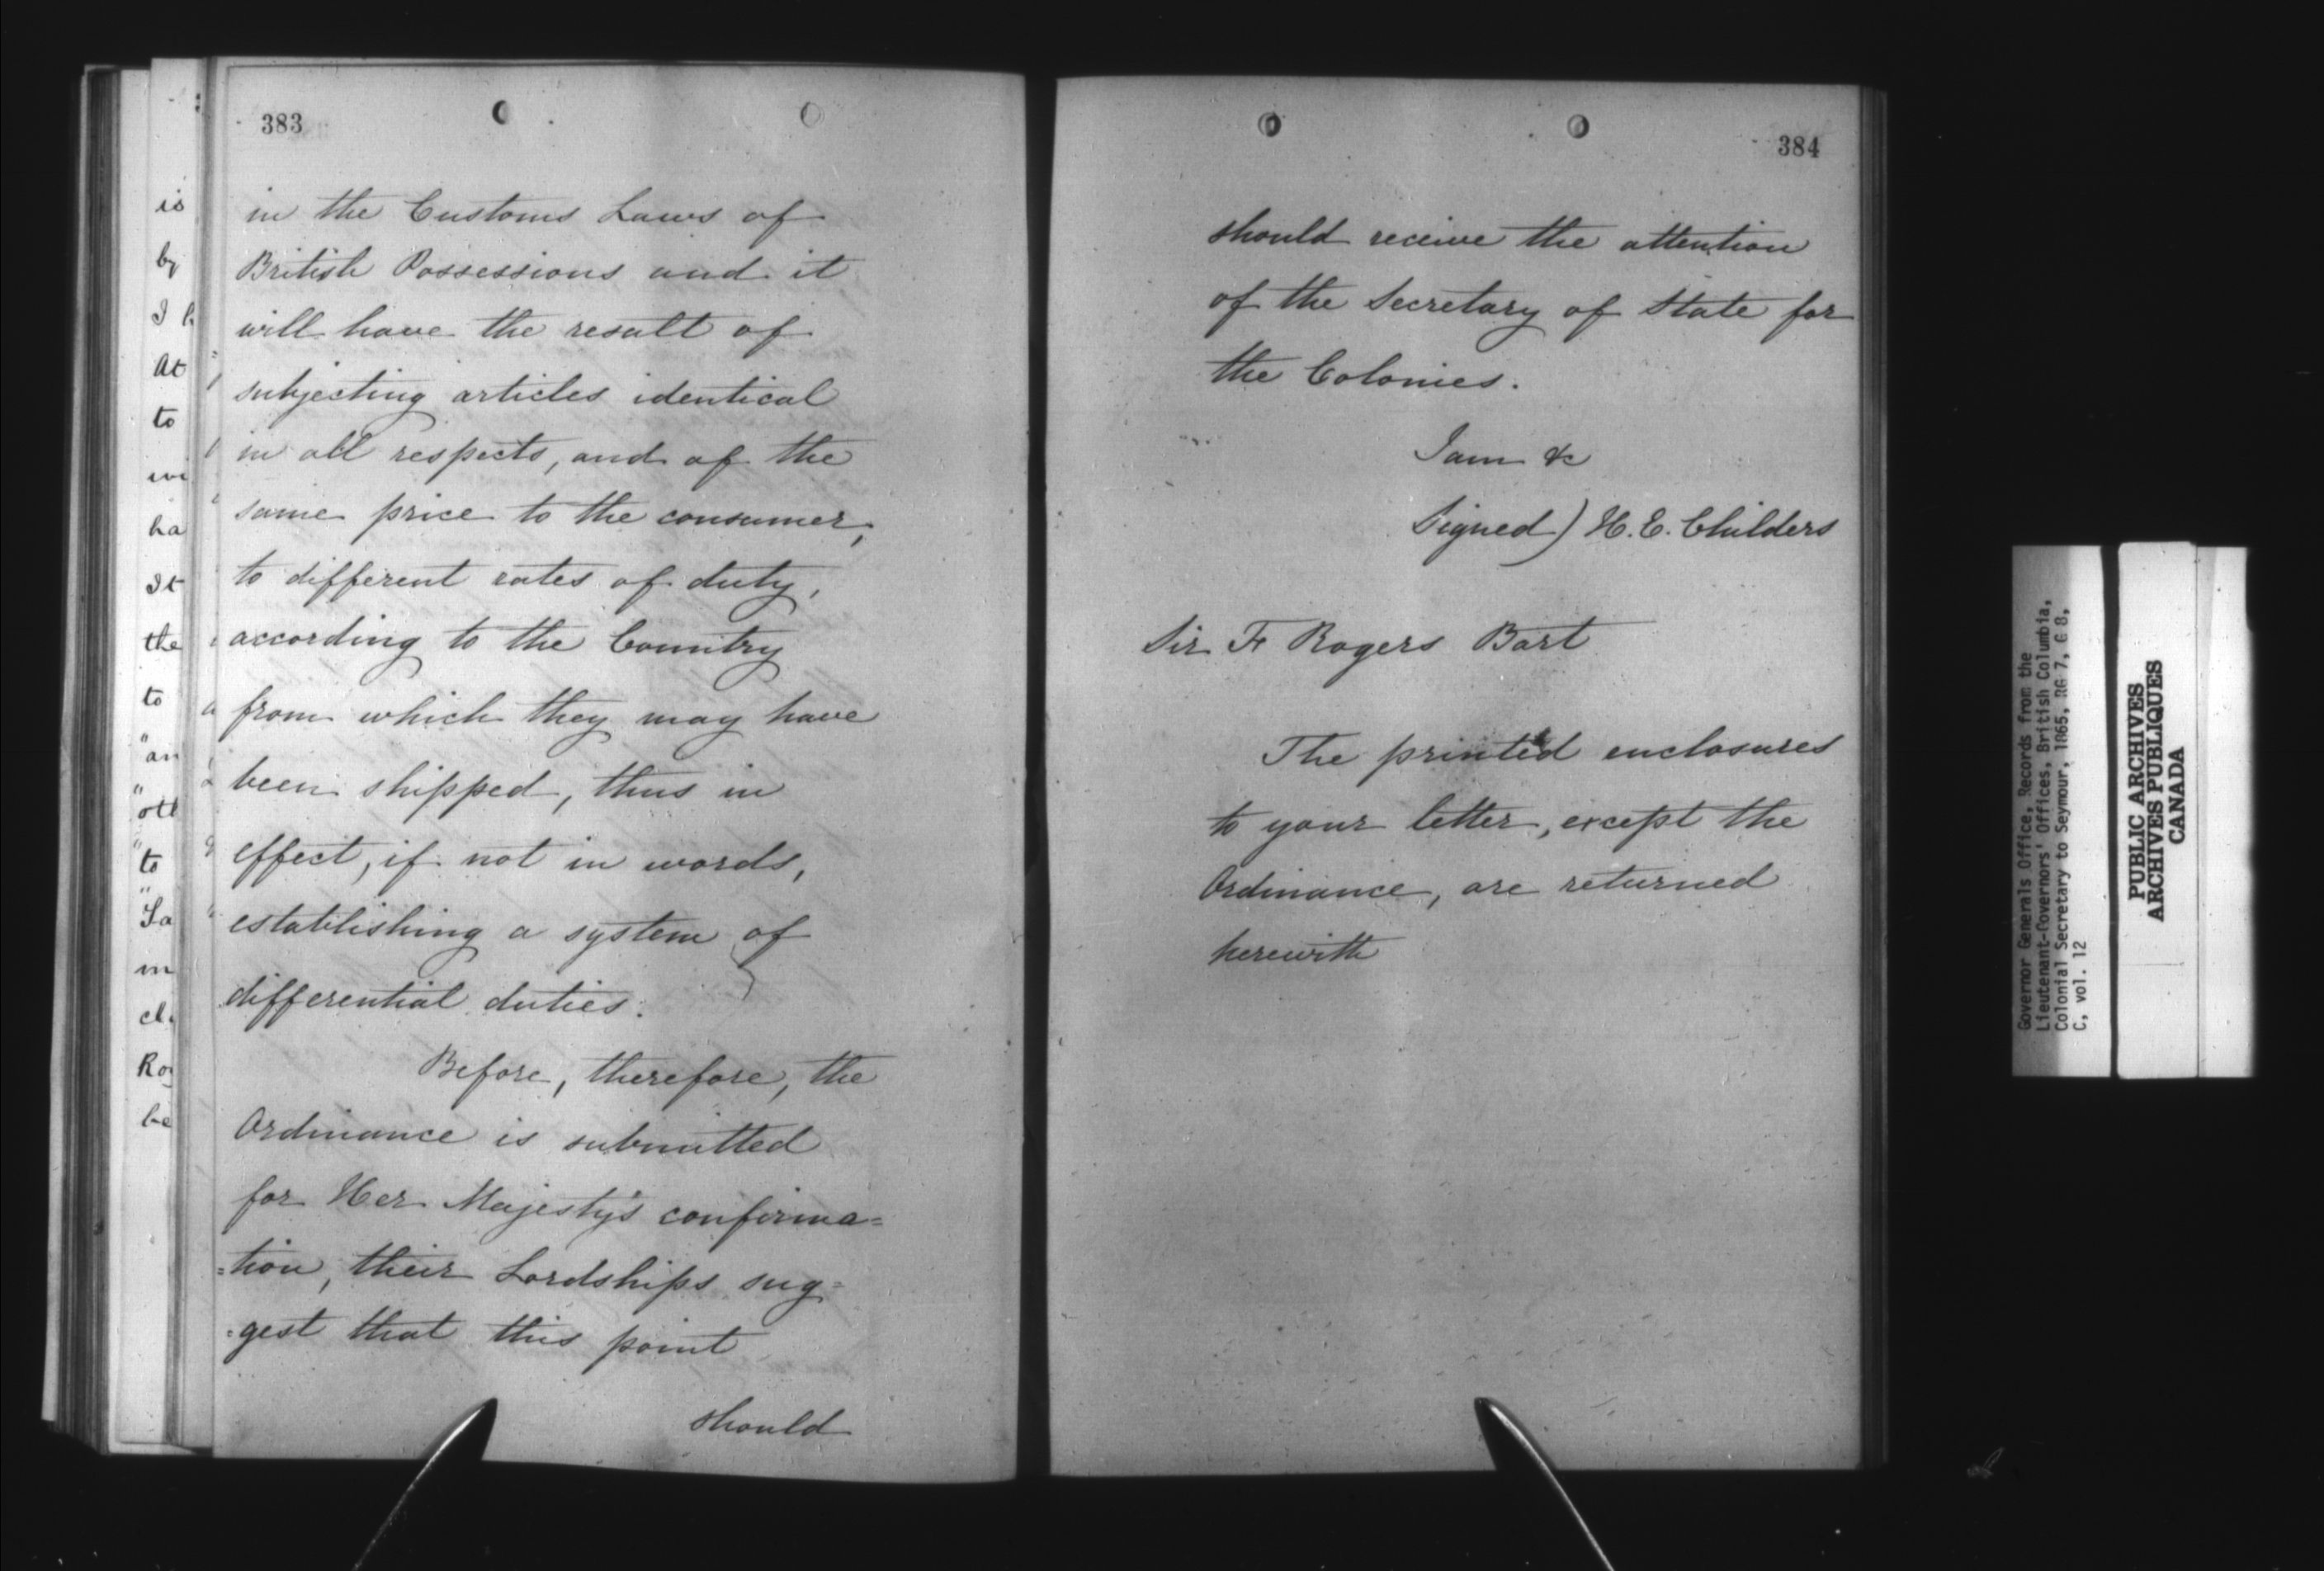 383
in the Customs Laws of
British Possessions and it
will have the result of
subjecting articles identical
in all respects, and of the
same price to the consumer,
to different rates of duty,
according to the Country
from which they may have
been shipped, thus in
effect, if not in words,
establishing a system of
differential duties.
Before, therefore, the
Ordinance is submitted
for Her Majesty's confirma=
=tion, their Lordships sug=
=gest that this point
should
384
should receive the attention
of the Secretary of State for
the Colonies.
I am &c
Signed) H. E. Childers
Sir F Rogers Bart
The printed enclosures
to your letter, except the
Ordinance, are returned
herewith
is
by
I h
At
to
wi
ha
It
the
to
"an
"oth
"to
"Sa
in
cl.
Ro
be
Governor Generals Office, Records from the
Lieutenant-Governors' Offices, British Columbia,
Colonial Secretary to Seymour, 1865, RG 7, G 8,
C, vol. 12
PUBLIC ARCHIVES
ARCHIVES PUBLIQUES
CANADA